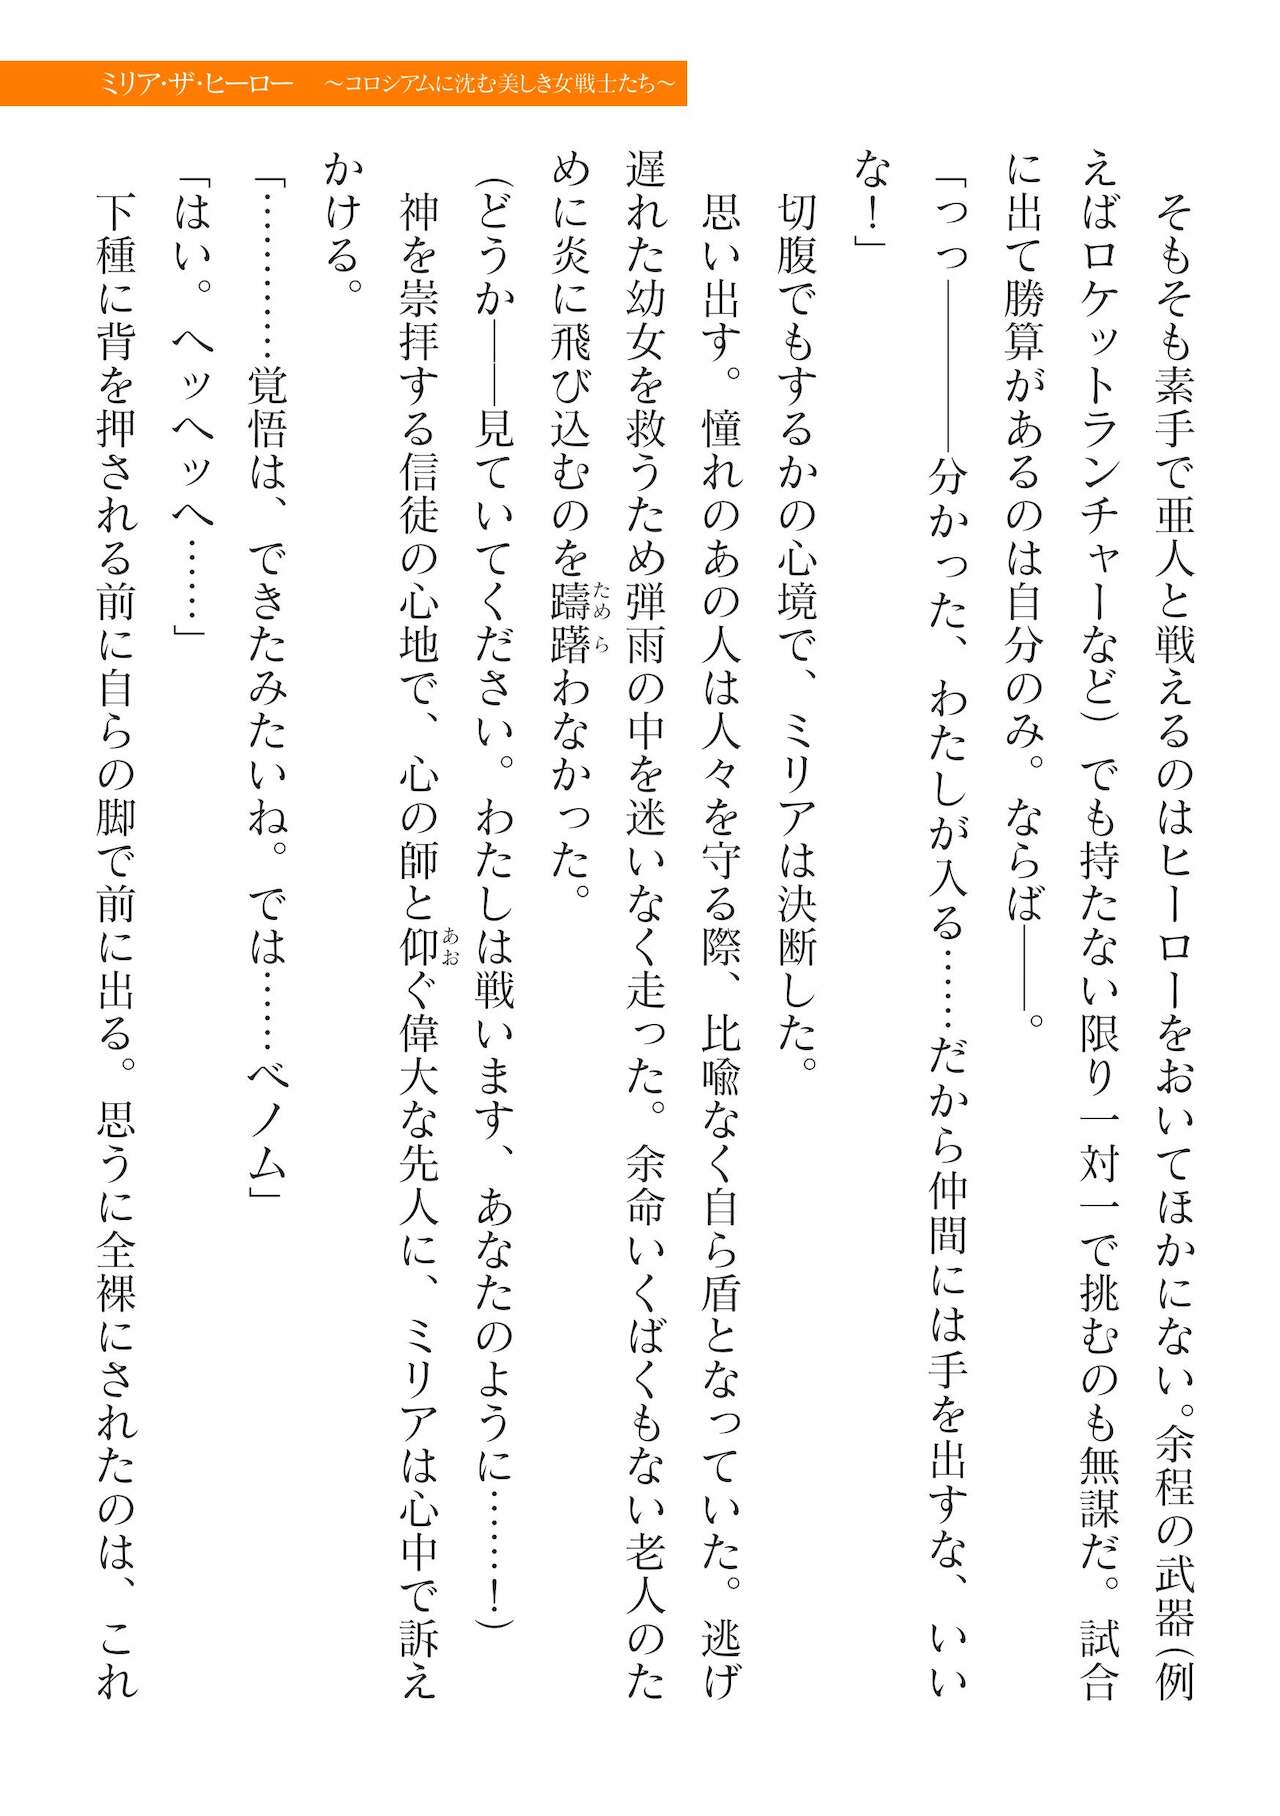 ミリア・ザ・ヒーロー　～コロシアムに沈む美しき女戦士たち～
　そもそも素手で亜人と戦えるのはヒーローをおいてほかにない。余程の武器（例
えばロケットランチャーなど）でも持たない限り一対一で挑むのも無謀だ。試合
に出て勝算があるのは自分のみ。ならば――。
「っっ――――分かった、わたしが入る……だから仲間には手を出すな、いい
な！」
　切腹でもするかの心境で、ミリアは決断した。
　思い出す。憧れのあの人は人々を守る際、比喩なく自ら盾となっていた。逃げ
遅れた幼女を救うため弾雨の中を迷いなく走った。余命いくばくもない老人のた
めに炎に飛び込むのを躊躇わなかった。
（どうか――見ていてください。わたしは戦います、あなたのように……！）
　神を崇拝する信徒の心地で、心の師と仰ぐ偉大な先人に、ミリアは心中で訴え
かける。
「…………覚悟は、できたみたいね。では……ベノム」
「はい。ヘッヘッヘ……」
　下種に背を押される前に自らの脚で前に出る。思うに全裸にされたのは、これ